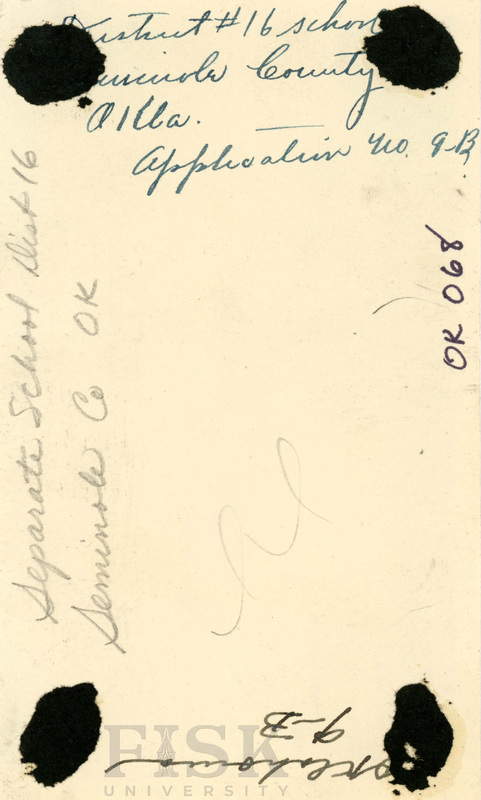 District #16 school
Seminole County
Okla.
Application No. 9-B
Separate School Dist 16
Seminole Co OK
OK 068
Oklahoma
9-B
FISK
UNIVERSITY